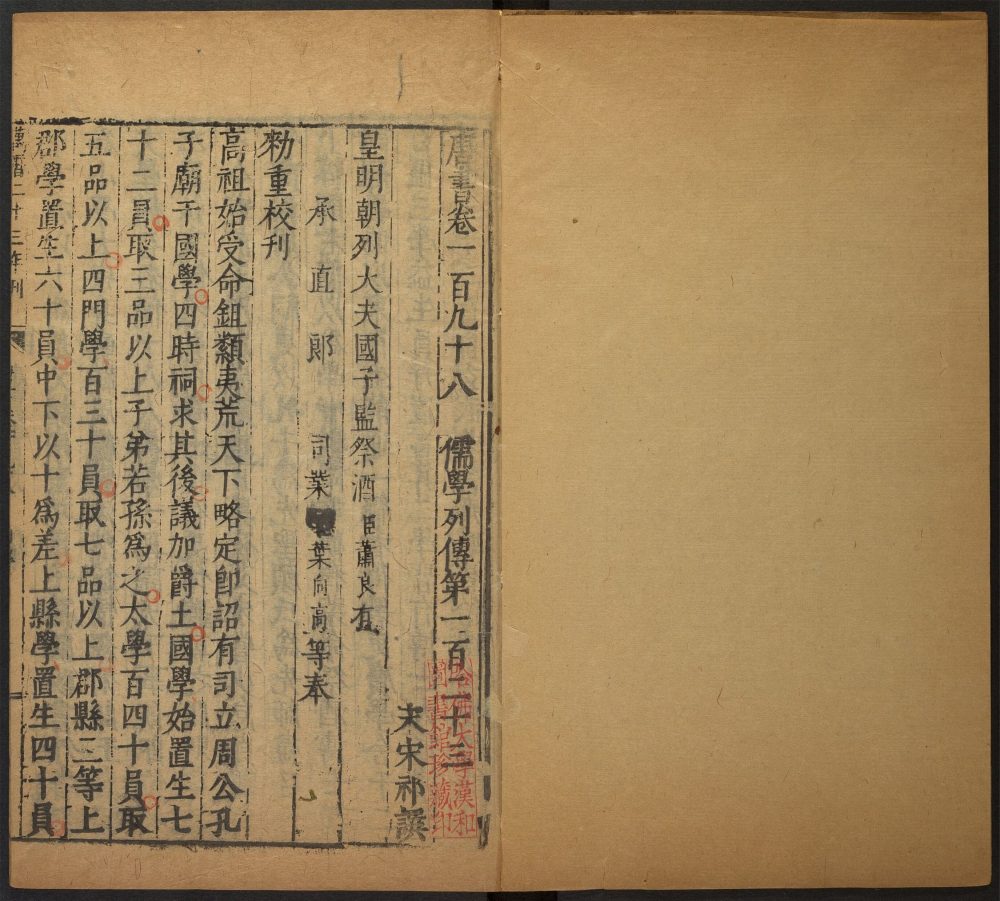 唐書卷一百九十八 儒學列傳第一百二十三
宋宋祁譔
皇明朝列大夫國子監祭酒臣蕭良有
承直郎司業臣葉向高等奉
勑重校刊
高祖始受命鉏纇夷荒天下略定卽詔有司立周公孔
子廟于國學四時祠求其後議加爵土國學始置生七
十二員取三品以上子弟若孫爲之太學百四十員取
五品以上四門學百三十員取七品以上郡縣三等上
郡學置生六十員中下以十爲差上縣學置生四十員
萬曆二十三年刊
哈佛大學漢和
圖書館珍藏印